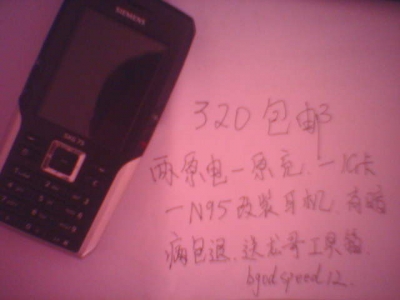 SIEMENS
SXG 75
320包邮
两原电一原充.一1G卡
一N95改装耳机.有暗
病包退.送龙哥工具箱.
bgodspeed12.